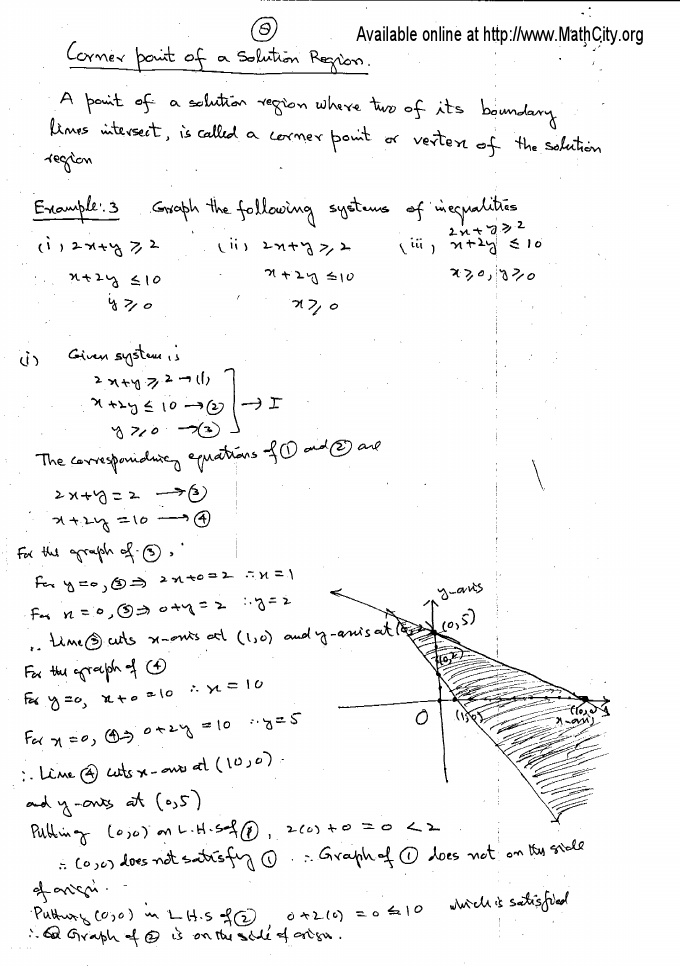 8
Available online at http://www.MathCity.org
Corner point of a Solution Region.
A point of a solution region where two of its boundary
lines intersect, is called a corner point or vertex of the solution
region
Example:3 Graph the following systems of inequalities
(i) 2x+y ≥ 2 (ii) 2x+y ≥ 2 (iii) 2x+y ≥ 2
x+2y ≤ 10 x+2y ≤ 10 x+2y ≤ 10
y ≥ 0 x ≥ 0 x ≥ 0, y ≥ 0
(i) Given system is
2x+y ≥ 2 → (1)
x+2y ≤ 10 → ② → I
y ≥ 0 → ③
The corresponding equations of ① and ② are
2x+y = 2 → ③
x+2y = 10 → ④
For the graph of ③,
For y=0, ③ ⇒ 2x+0=2 ∴ x=1
For x=0, ③ ⇒ 0+y=2 ∴ y=2
∴ Line ③ cuts x-axis at (1,0) and y-axis at (0,2)
For the graph of ④
For y=0, x+0=10 ∴ x=10
For x=0, ④ ⇒ 0+2y=10 ∴ y=5
∴ Line ④ cuts x-axis at (10,0).
and y-axis at (0,5)
y-axis
(0,5)
(0,2)
O
(1,0)
(10,0)
x-axis
Putting (0,0) on L.H.S of ①, 2(0)+0=0<2
∴ (0,0) does not satisfy ① ∴ Graph of ① does not on the side
of origin.
Putting (0,0) in L.H.S of ②, 0+2(0)=0≤10 which is satisfied
∴ Graph of ② is on the side of origin.